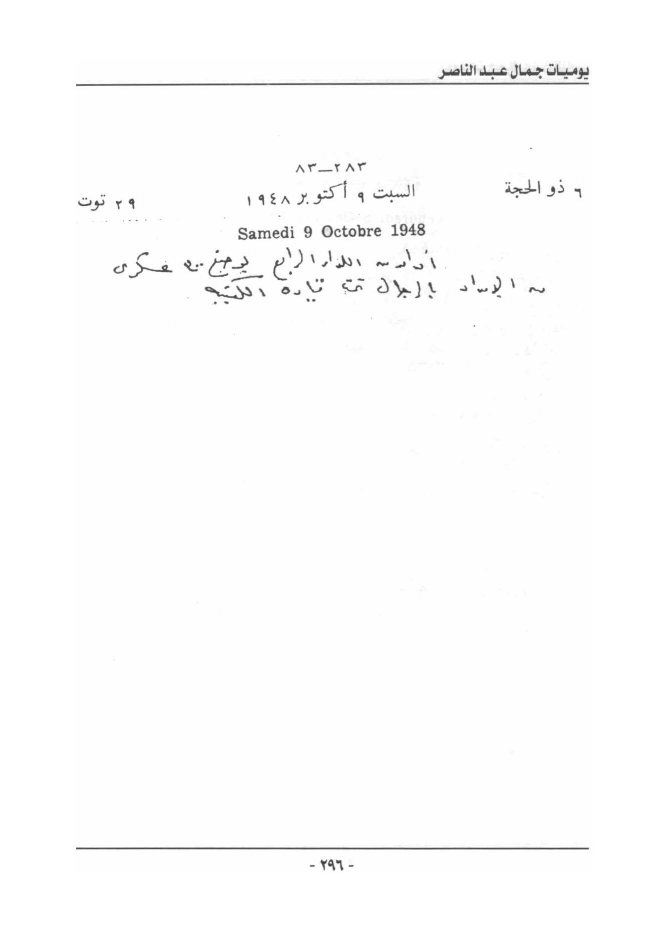 يوميات جمال عبد الناصر
٢٨٣ــ٨٣
٦ ذو الحجة
السبت ٩ أكتوبر ١٩٤٨
٢٩ توت
Samedi 9 Octobre 1948
اللواء الرابع عسكرى
من بالرجال تحت قيادة الكتيبه
- ٢٩٦ -